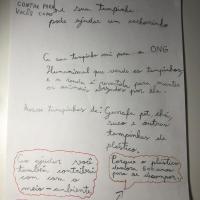 CONTAR PARA VOCÊS COMO
sua tampinha
pode ajudar um cachorrinho
tampinha vai para a ONG
Humanimal que vende as tampinhas
e a renda é para manter
os animais por ela.
tampinhas de: Garrafa pet, chá,
suco e outras
tampinhas de
plástico.
ajudar você
também contribui
com o
meio-ambiente
Porque o plástico
demora anos
para se decompor.